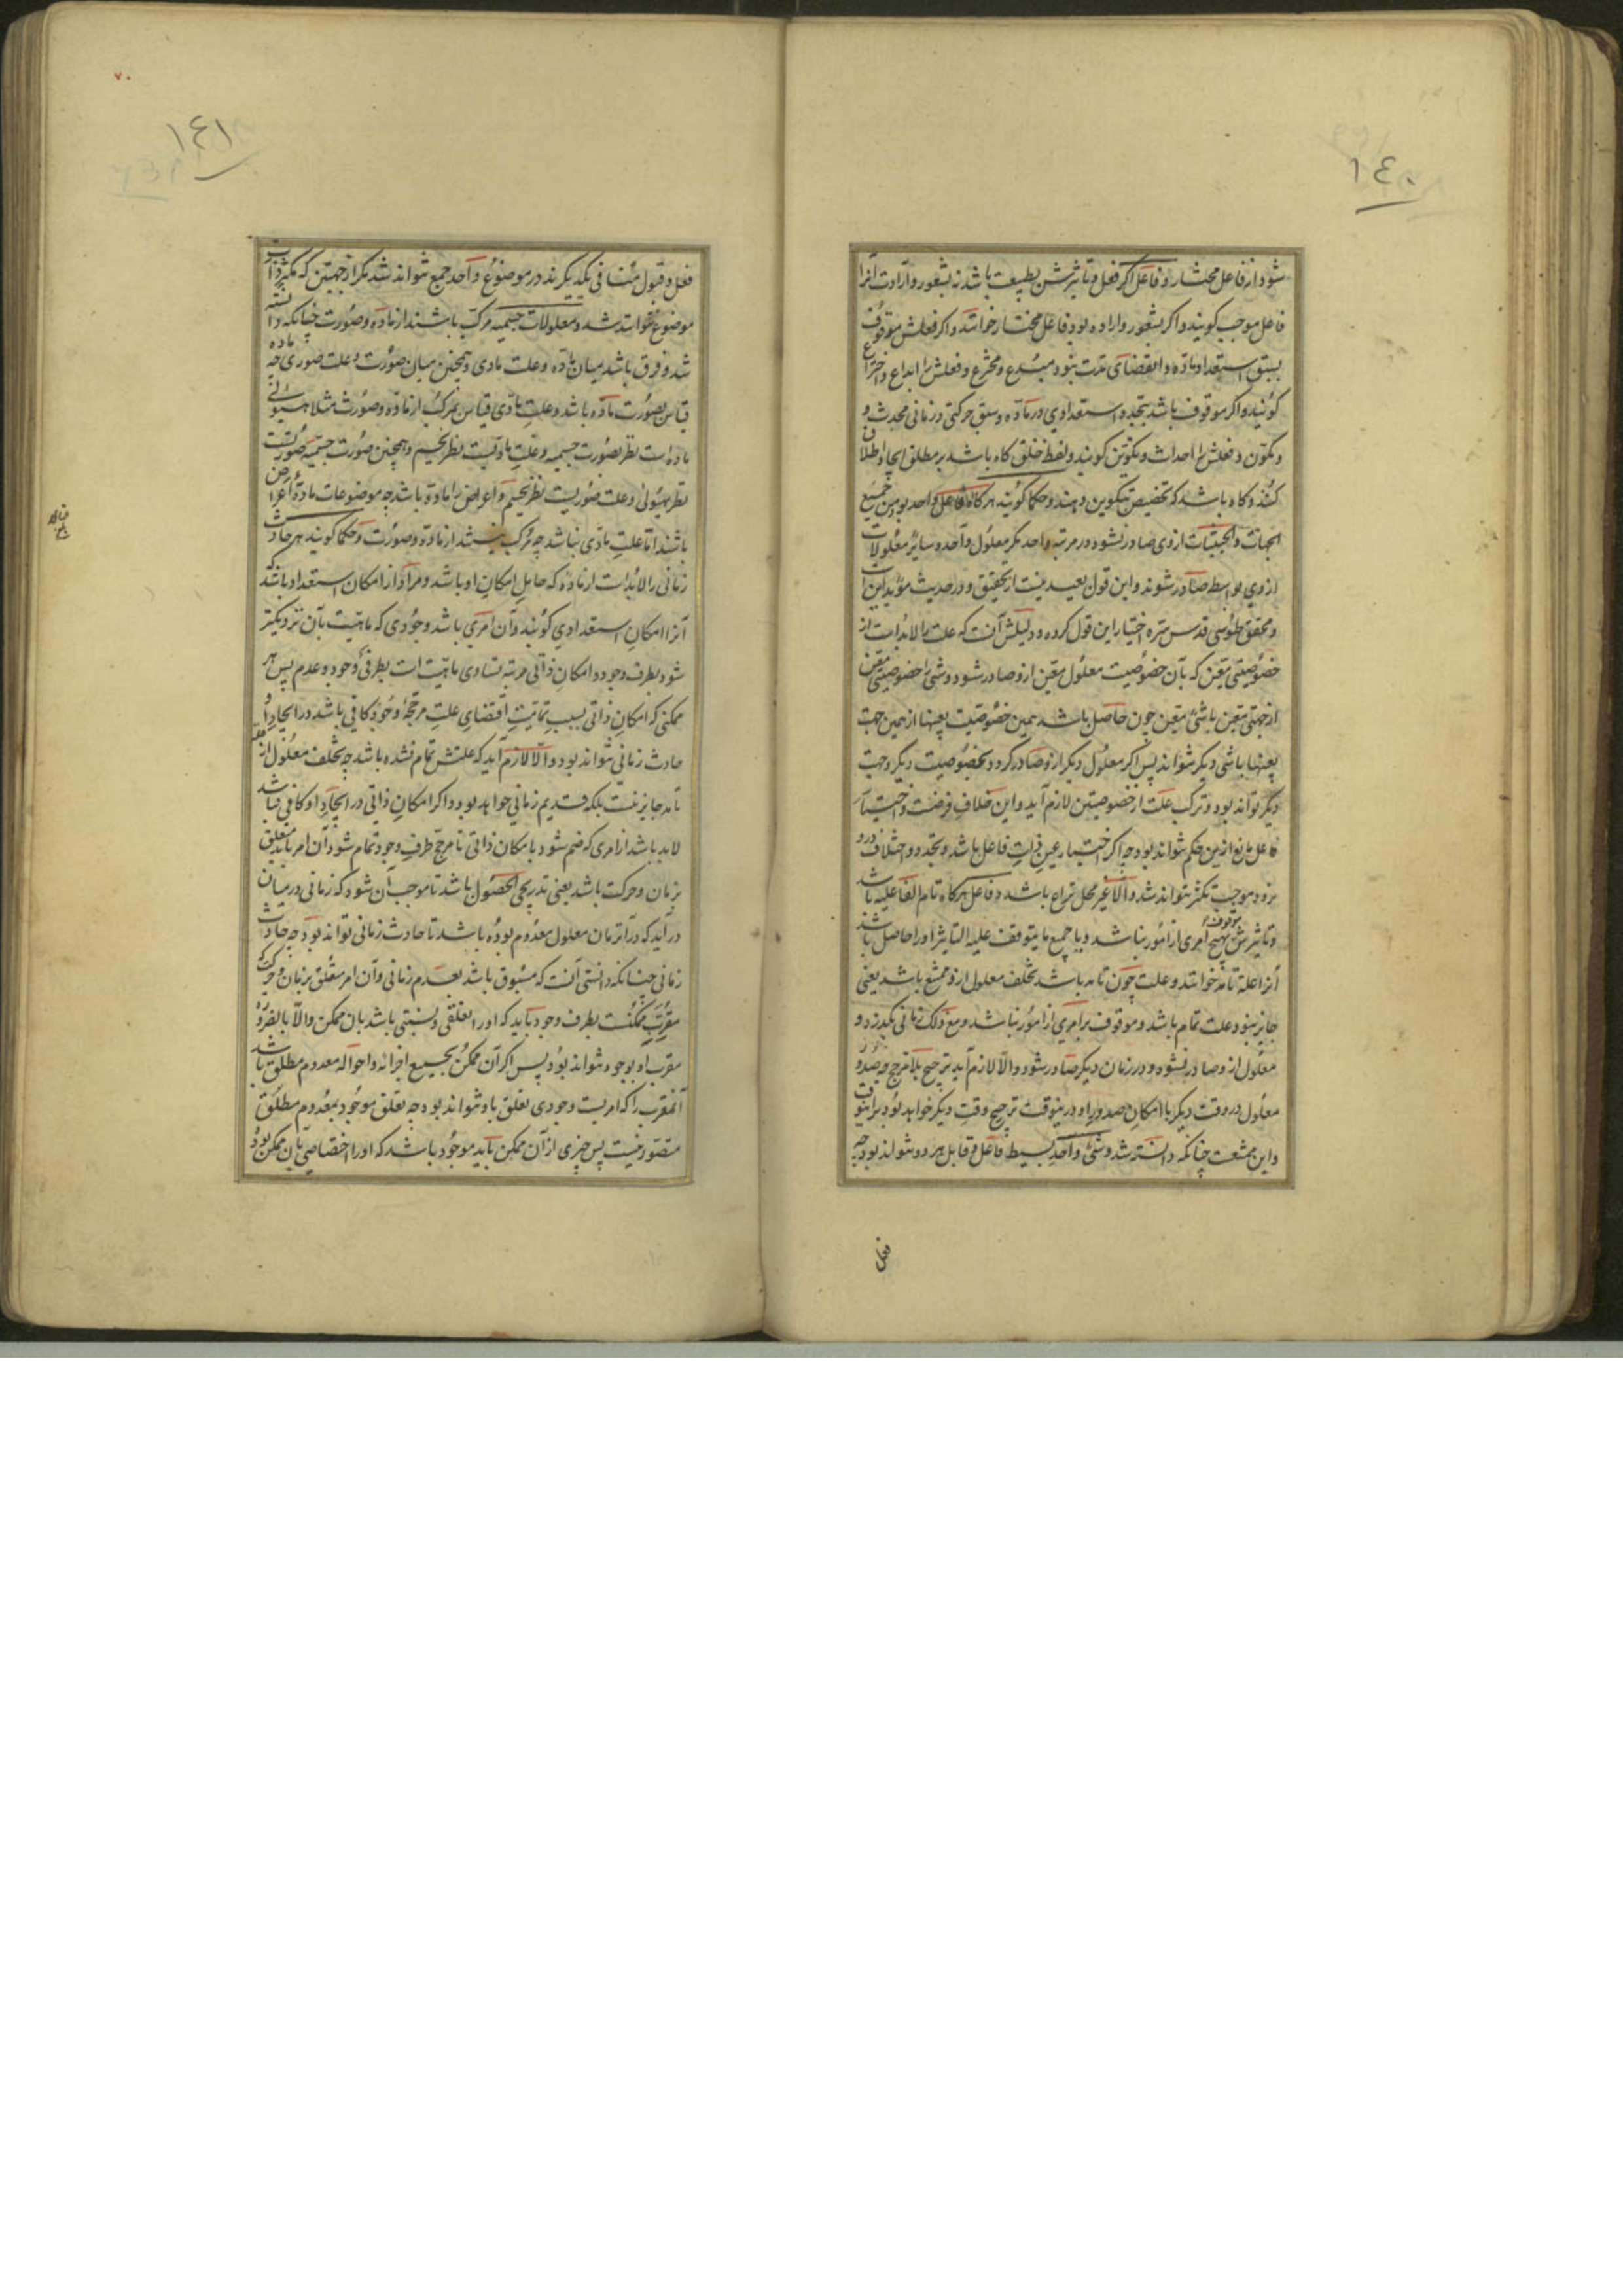 ١٤٠
شود از فاعل مختار و فاعل اگر فعل و تاثیرش بطبیعت باشد نه بشعور و ارادت آنرا
فاعل موجب کویند و اکر بشعور و اراده بود فاعل مختار خوانند و اکر فعلش موقوف
بسبق استعداد ماده و انقضای مدت نبود مبدع و مخترع و فعلش را ابداع و اختراع
کویند و اکر موقوف باشد بتجدد استعدادی در ماده و سبق حرکتی و زمانی محدث و
و مکون و فعلش را احداث و تکوین کویند و لفظ خلق کاه باشد بر مطلق ایجاد اطلاق
کنند و کاه باشد که تخصیص بتکوین دهند و حکما کویند هر کاه فاعل واحد بود من جمیع
الجهات و الحیثیات از وی صادر نشود در مرتبه واحد مکر معلول واحد و سایر معلولات
از وی بواسطه صادر شوند و این قول بعید نیست از تحقیق و در حدیث مؤید این
و محقق طوسی قدس سره اختیار این قول کرده و دلیلش آنست که علت را لابد است از
خصوصیتی معین که بآن خصوصیت معلول معین از و صادر شود و شی را خصوصیتی معین
از جهتی معین با شی معین چون حاصل باشد همین خصوصیت بعینها از همین جهت
بعینها با شی دیکر نتواند پس اکر معلول دیکر از و صادر کردد بخصوصیت دیکر و جهت
دیکر تواند بود و ترکب علت از خصوصیتین لازم آید و این خلاف فرضست و اختیار
فاعل مانع ازین حکم نتواند بود چه اکر اختیار عین ذات فاعل باشد و تجدد و اختلاف درو
نرود موجب تکثر نتواند شد و الا غیر محل نزاع باشد و فاعل هر کاه تام الفاعلیه باشد
و تاثیرش موقوف بهیچ امری از امور نباشد و یا جمیع ما یتوقف علیه التاثیر او را حاصل باشد
آنرا علة تامه خوانند و علت چون تامه باشد تخلف معلول از و ممتنع باشد یعنی
جایز نبود علت تمام باشد و موقوف بر امری از امور نباشد و مع ذلک زمانی بگذرد و
معلول از و صادر نشود و در زمان دیکر صادر شود و الا لازم آید ترجیح بلا مرجح چه صدور
معلول در وقت دیکر با امکان صدور او درینوقت ترجیح وقت دیکر خواهد بود برینوقت
و این ممتنعست چنانکه دانسته شد و شی واحد بسیط فاعل و قابل هر دو نتواند بود چه
فعل
٧٠
١٤١
فعل و قبول متنافی یکدیکرند در موضوع واحد جمع نتواند شد مکر از جهتین که مکثر ذات
موضوع نتوانند شد و معلولات جسمیه مرکب باشند از ماده و صورت چنانکه دانسته
شد و فرق باشد میان ماده و علت مادی و همچنین میان صورت و علت صوری چه ماده
قیاس بصورت ماده باشد و علت مادی قیاس بمرکب از ماده و صورت مثلا هیولی
ماده است نظر بصورت جسمیه و علت مادیست نظر بجسم و همچنین صورت جسمیه صورتست
نظر بهیولی و علت صوریست نظر بجسم و اعراض را ماده باشد چه موضوعات ماده اعراض
باشند اما علت مادی نباشد چه مرکب نیستند از ماده و صورت و حکما کویند هر حادث
زمانی را لابد است از ماده که حامل امکان او باشد و مراد از امکان استعداد باشد که
آنرا امکان استعدادی کویند و آن امری باشد وجودی که ماهیت بآن نزدیکتر
شود بطرف وجود و امکان ذاتی مرتبه تساوی ماهیت است بطرفی وجود و عدم پس هر
ممکنی که امکان ذاتی بسبب تمامیت اقتضای علت مرجحه وجود کافی باشد در ایجاد او
حادث زمانی نتواند بود و الا لازم آید که علتش تمام نشده باشد چه تخلف معلول از علت
تامه جایز نیست بلکه قدیم زمانی خواهد بود و اکر امکان ذاتی در ایجاد او کافی نباشد
لابد باشد از امری که ضم شود با مکان ذاتی تا مرجح طرف وجود تمام شود و آن امر باید متعلق
بزمان و حرکت باشد یعنی تدریجی الحصول باشد تا موجب آن شود که زمانی درمیان
در آید که در آنزمان معلول معدوم بوده باشد تا حادث زمانی تواند بود چه حادث
زمانی چنانکه دانستی آنست که مسبوق باشد بعدم زمانی و آن امر متعلق بزمان و حرکت که
مقرب ممکنست بطرف وجود باید که او را تعلقی و نسبتی باشد بان ممکن و الا بالضروره
مقرب او بوجود نتواند بود پس اکر آن ممکن بجمیع اجزائه و احواله معدوم مطلق باشد
آنمقرب را که امریست وجودی تعلق باو نتواند بود چه تعلق موجود بمعدوم مطلق
متصور نیست پس چیزی از آن ممکن باید موجود باشد که او را اختصاصی بان ممکن بود